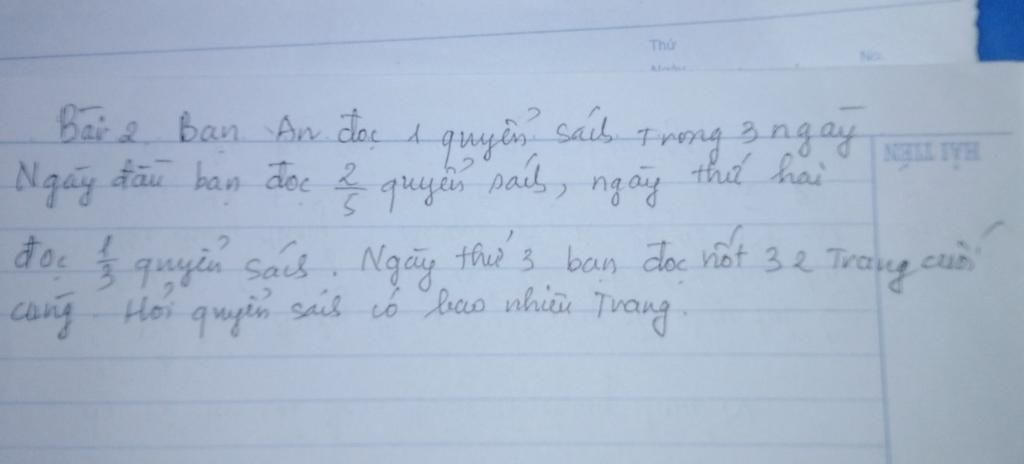 Thứ
No.
Bài 2 Bạn An đọc 1 quyển sách Trong 3 ngày
HẢI TIẾN
Ngày đầu bạn đọc 2/5 quyển sách, ngày thứ hai
đọc 1/3 quyển sách. Ngày thứ 3 bạn đọc nốt 32 Trang cuối
cùng. Hỏi quyển sách có bao nhiêu Trang.